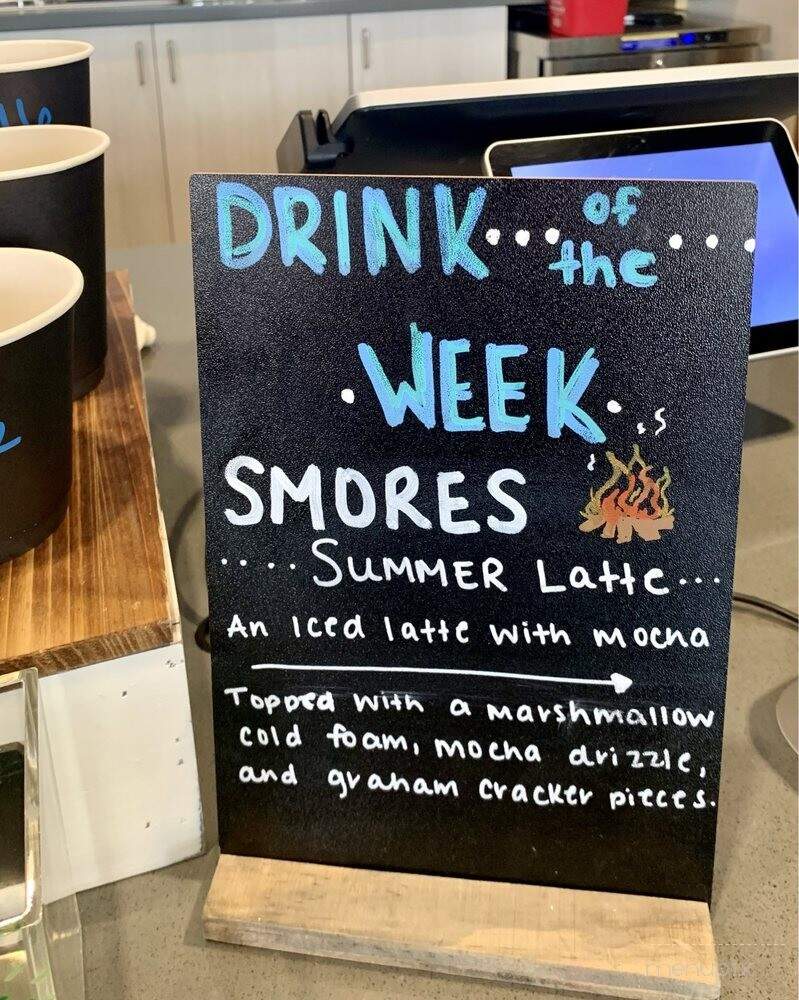 DRINK... of ...
the
· WEEK ·
SMORES
.... SUMMER Latte...
An Iced latte with mocha
Topped with a marshmallow
cold foam, mocha drizzle,
and graham cracker pieces.